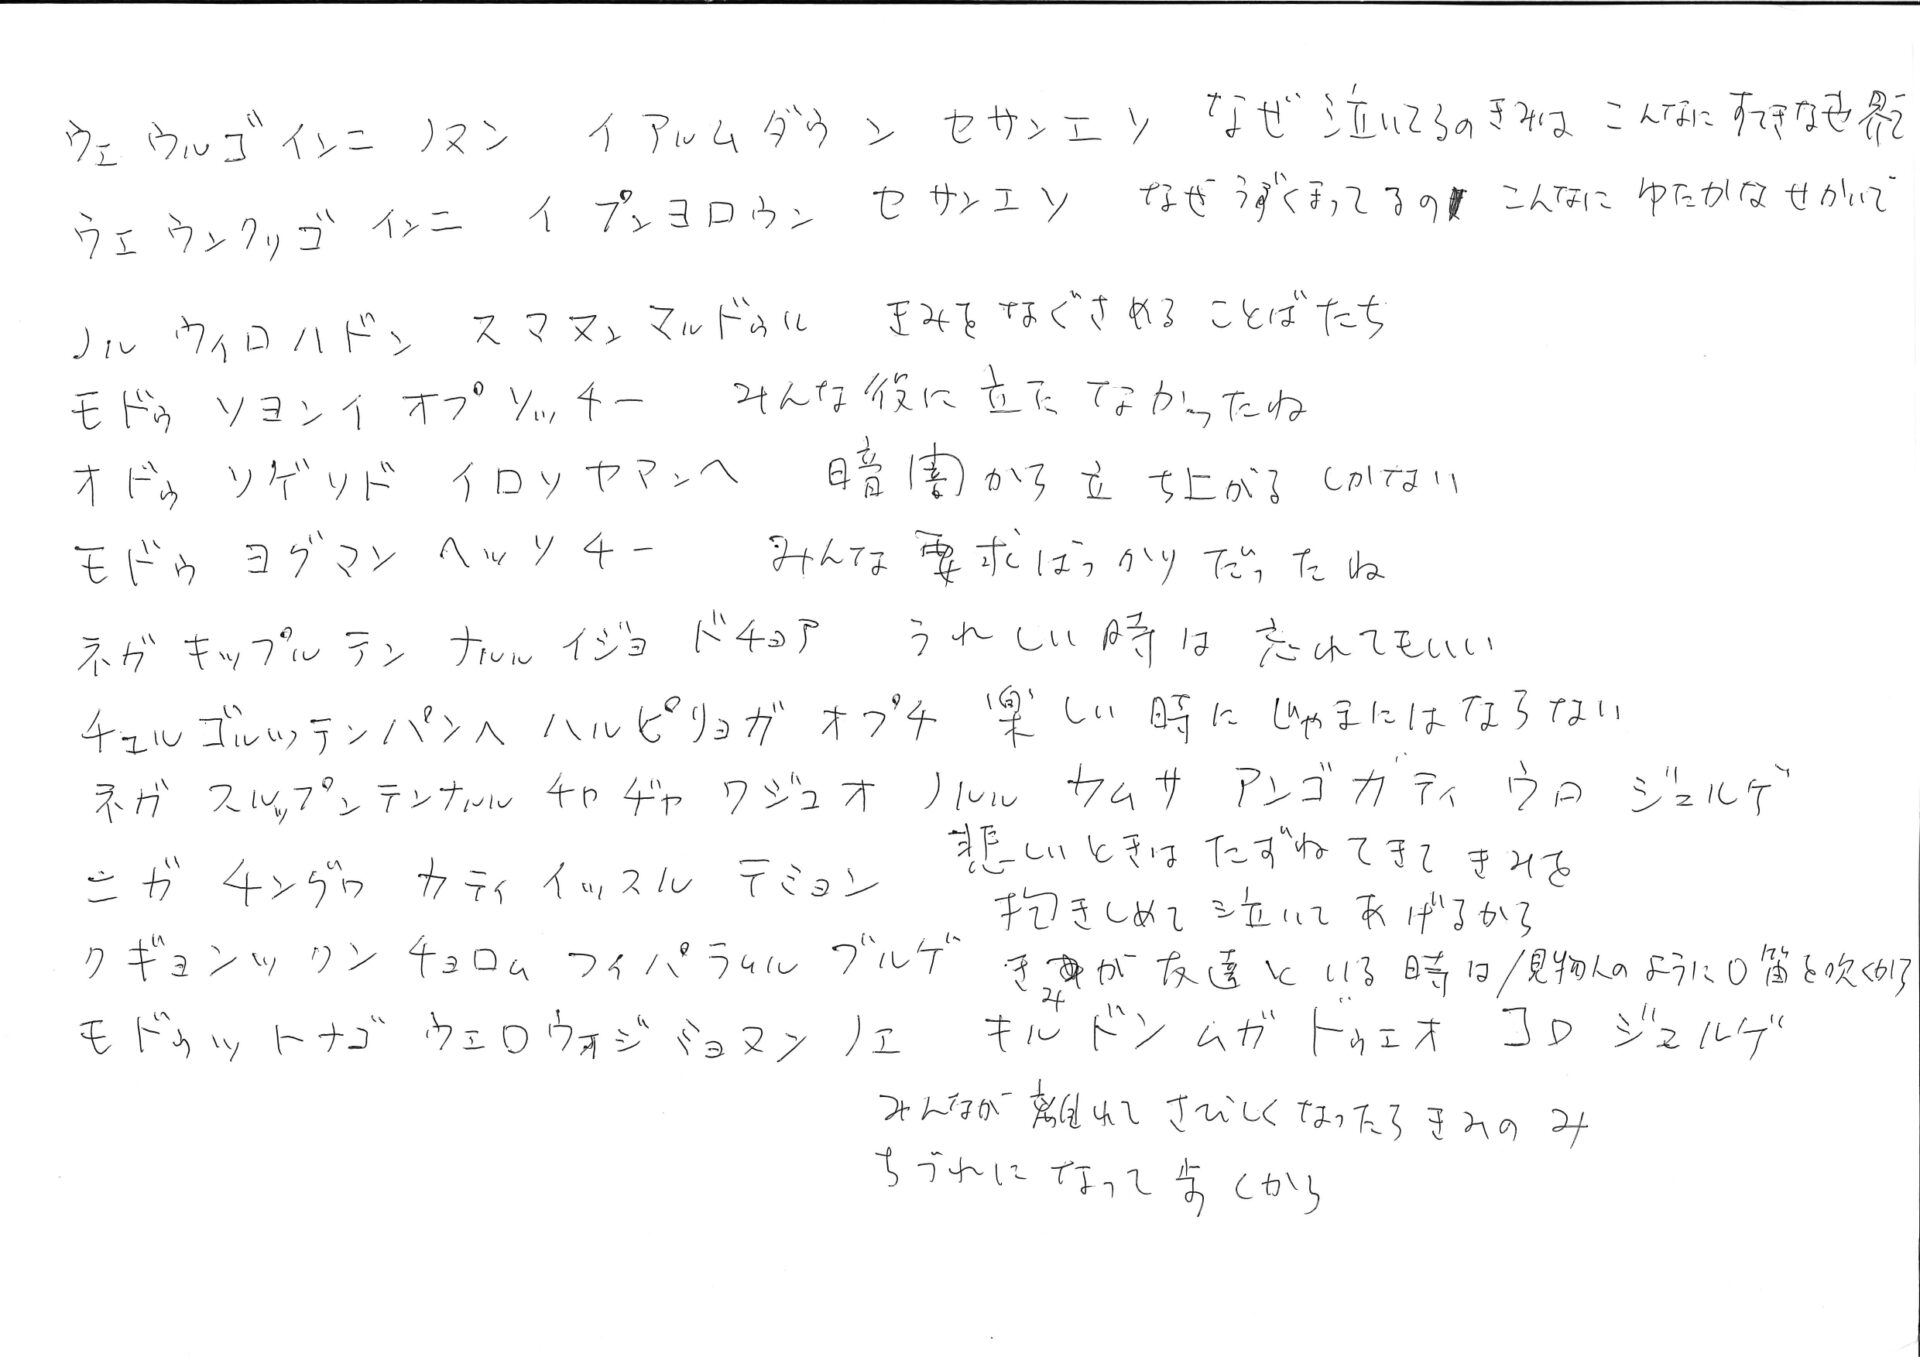 ウェ ウルゴ インニ ノヌン イ アルムダウン セサンエソ なぜ 泣いてるの きみは こんなに すてきな世界で
ウェ ウンクリゴ インニ イ プンヨロウン セサンエソ なぜ うずくまってるの こんなに ゆたかな せかいで
ノル ウィロハドン スマヌン マルドゥル きみを なぐさめる ことばたち
モドゥ ソヨンイ オプソッチー みんな役に 立た なかったね
オドゥ ソゲソド イロソヤマンヘ 暗闇から 立 ち上がる しかない
モドゥ ヨグマン ヘッソチー みんな 要求ばっかりだったね
ネガ キップル テン ナルル イジョ ドチョア うれしい時は 忘れてもいい
チュルゴルッテンパンヘ ハルピリョガ オプチ 楽しい 時に じゃまにはならない
ネガ スルップンテンナルル チャヂャ ワジュオ ノルル カムサ アンゴ ガティ ウロ ジュルゲ
悲しいときは たずねてきて きみを
抱きしめて 泣いて あげるから
ニガ チングワ カティ イッスル テミョン
クギョンックン チョロム フィパラムル ブルゲ きみが 友達といる時は/見物人のように口笛を吹くから
モドゥッ トナゴ ウェロウォジミョヌン ノエ キル ドンムガ ドゥエオ コロ ジュルゲ
みんなが 離れて さびしくなったら きみの み
ちづれに なって 歩くから